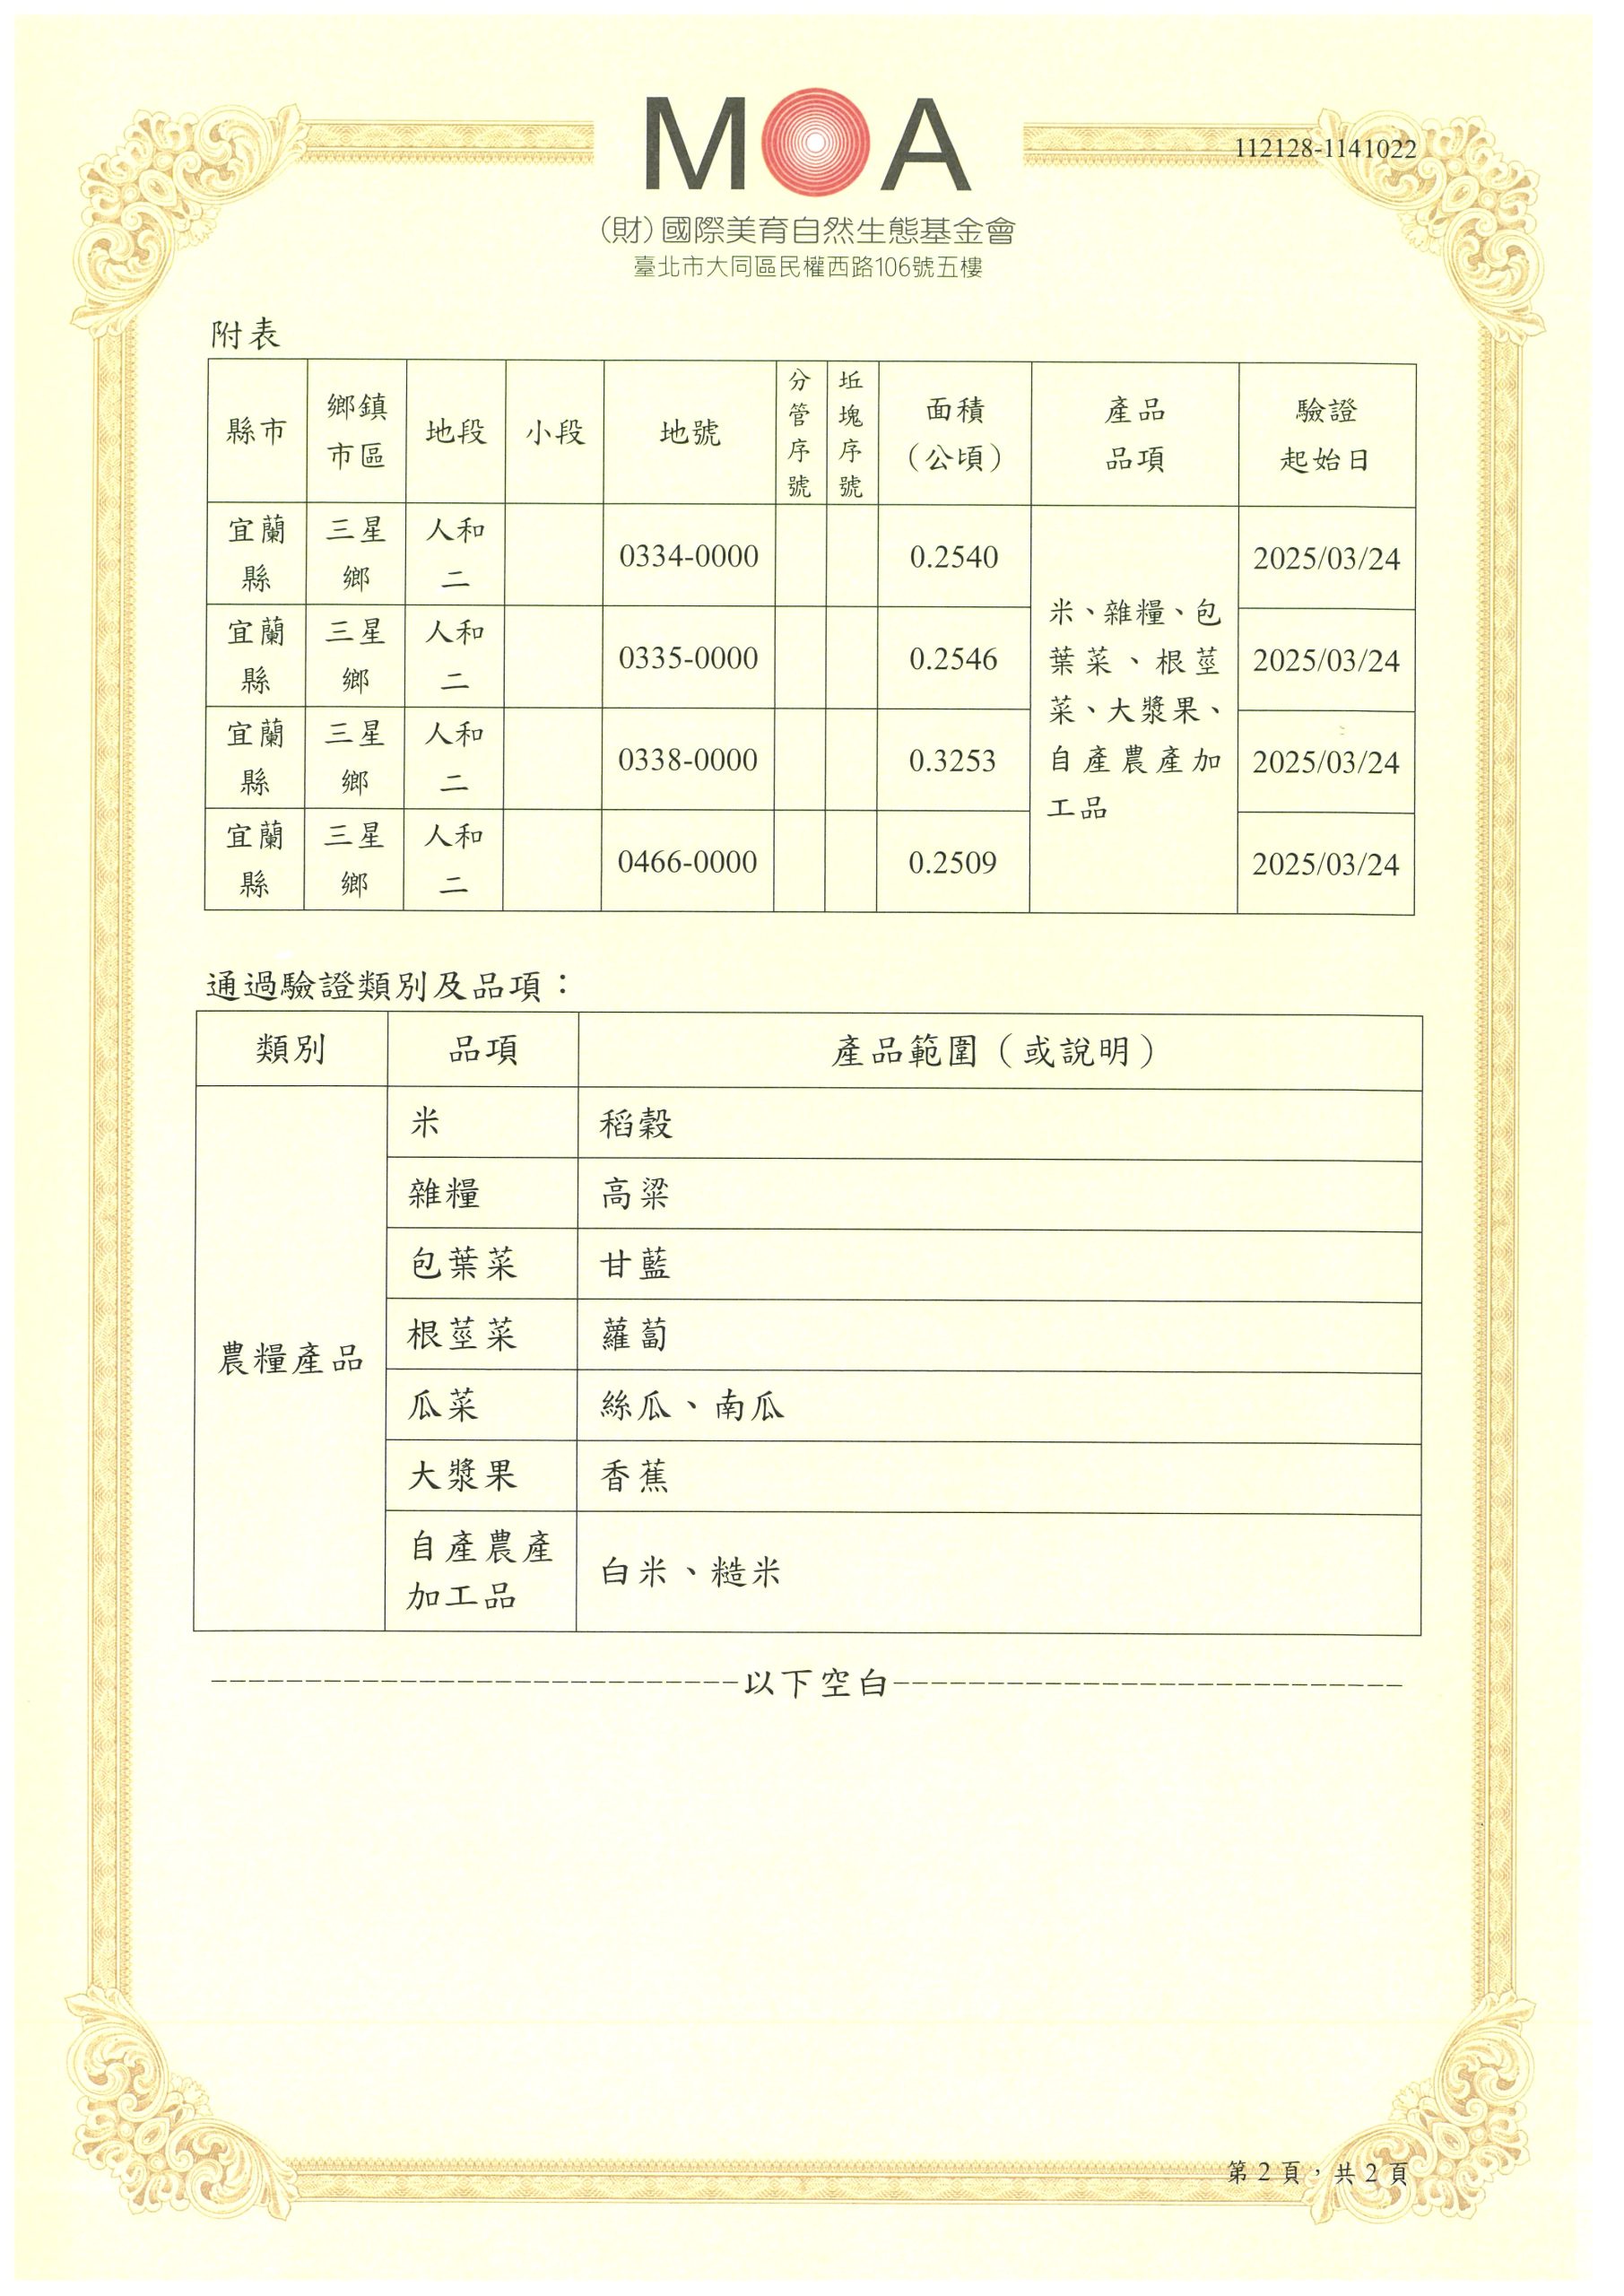 MOA
112128-1141022
(財)國際美育自然生態基金會
臺北市大同區民權西路106號五樓
附表
縣市 鄉鎮市區 地段 小段 地號 分管序號 坵塊序號 面積（公頃） 產品品項 驗證起始日
宜蘭縣 三星鄉 人和二 0334-0000 0.2540 2025/03/24
宜蘭縣 三星鄉 人和二 0335-0000 0.2546 2025/03/24
宜蘭縣 三星鄉 人和二 0338-0000 0.3253 2025/03/24
宜蘭縣 三星鄉 人和二 0466-0000 0.2509 2025/03/24
米、雜糧、包
葉菜、根莖
菜、大漿果、
自產農產加
工品
通過驗證類別及品項：
類別 品項 產品範圍（或說明）
農糧產品
米 稻穀
雜糧 高粱
包葉菜 甘藍
根莖菜 蘿蔔
瓜菜 絲瓜、南瓜
大漿果 香蕉
自產農產加工品 白米、糙米
----------------------------以下空白----------------------------
第 2 頁，共 2 頁